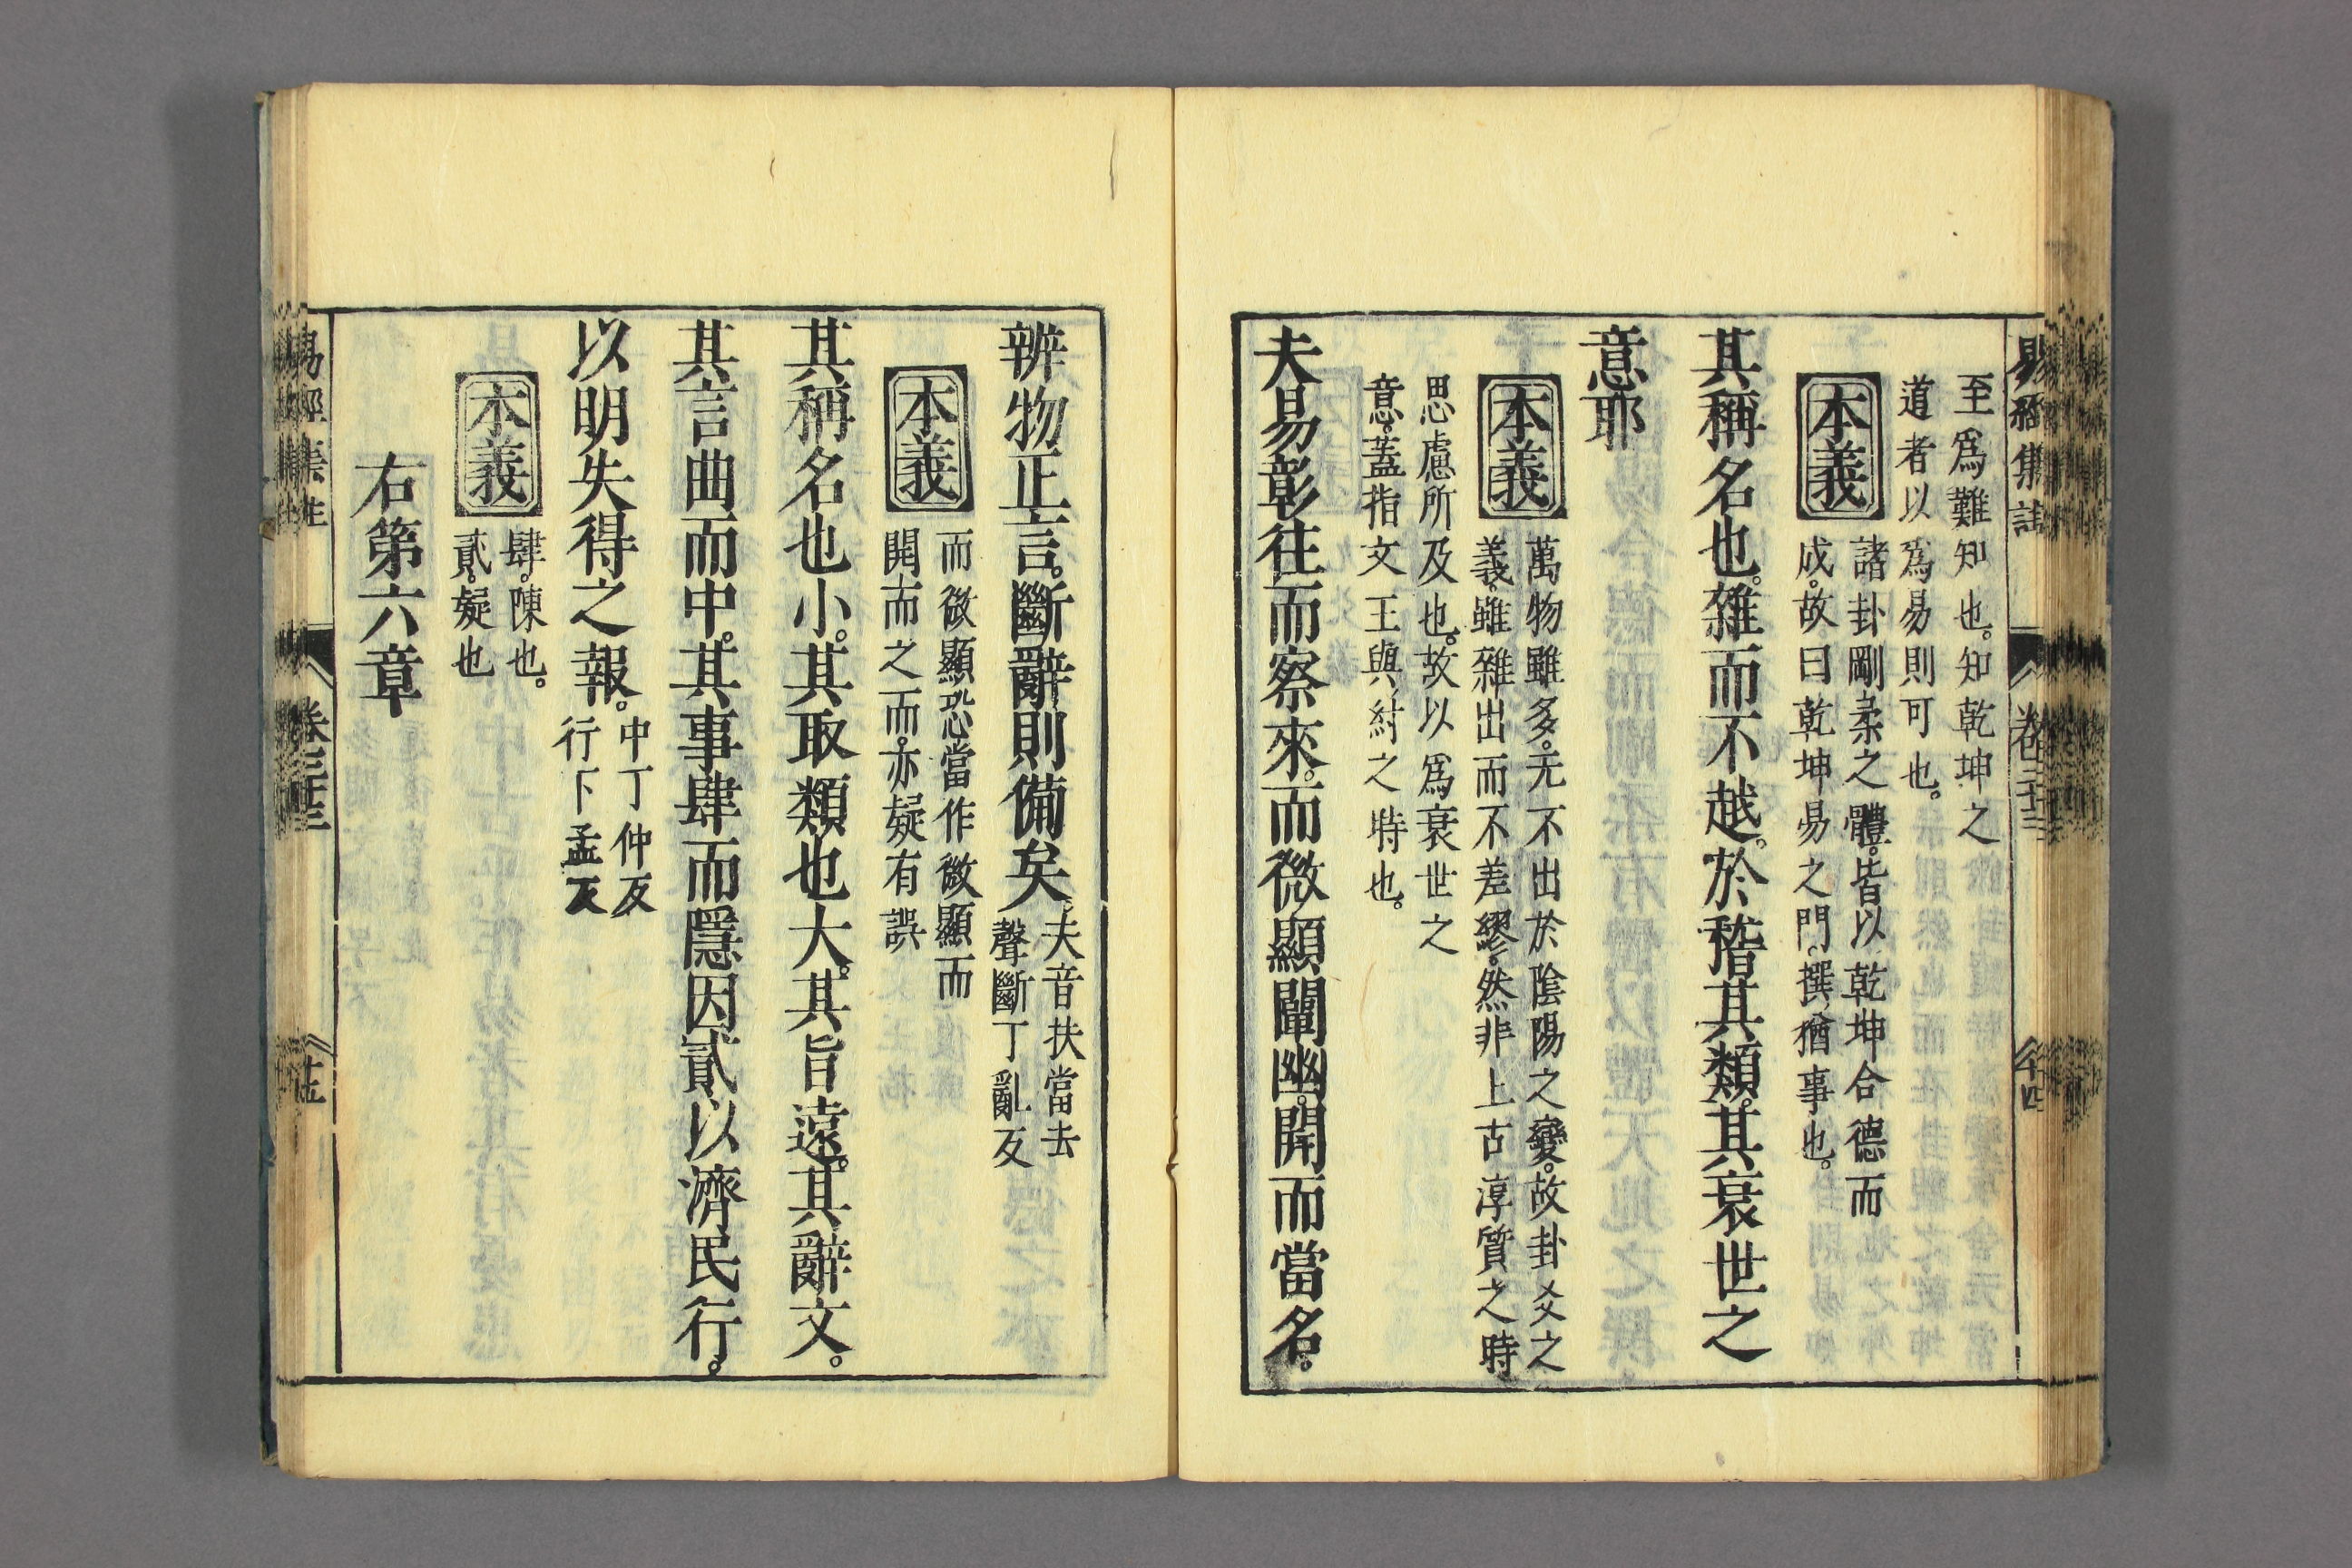 易經集註
卷二十三
十四
至爲難知也。知乾坤之
道者以爲易則可也。
本義
諸卦剛柔之體。皆以乾坤合德而
成。故曰乾坤易之門。撰。猶事也。
其稱名也。雜而不越。於稽其類。其衰世之
意耶
本義
萬物雖多。无不出於陰陽之變。故卦爻之
義。雖雜出而不差繆。然非上古淳質之時
思慮所及也。故以爲衰世之
意。蓋指文王與紂之時也。
夫易彰往而察來。而微顯闡幽。開而當名。
辨物正言。斷辭則備矣。
夫音扶當去
聲斷丁亂反
本義
而微顯恐當作微顯而
開而之而。亦疑有誤
其稱名也小。其取類也大。其旨遠。其辭文。
其言曲而中。其事肆而隱因貳以濟民行。
以明失得之報。
中丁仲反
行下孟反
本義
肆。陳也。
貳。疑也
右第六章